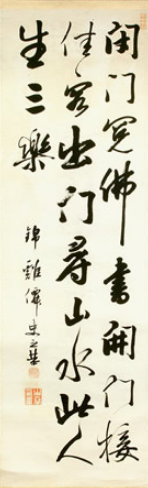 閉門閱佛書開門接
佳客出門尋山水此人
生三樂
錦雞僊史